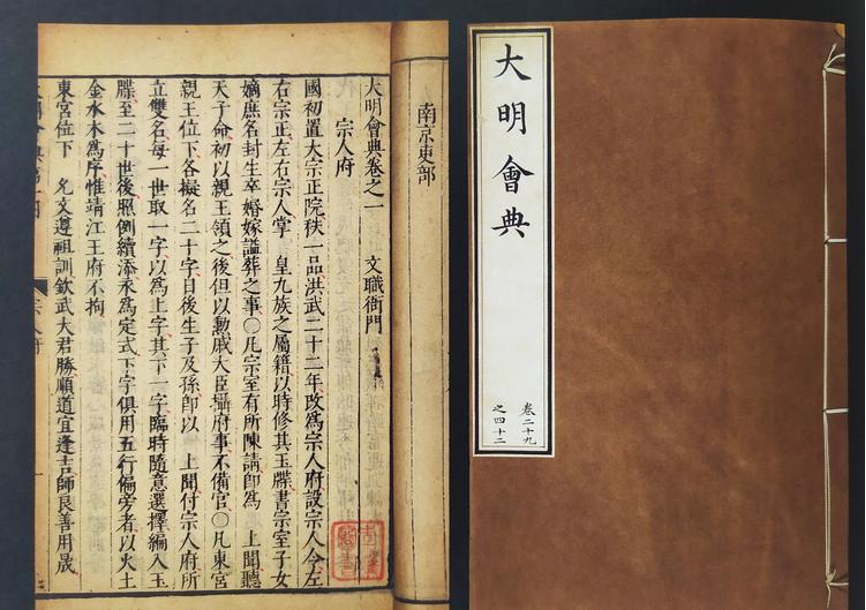 大明會典
卷二十九
之四十二
南京吏部
大明會典卷之一 文職衙門
宗人府
國初置大宗正院秩一品洪武二十二年改為宗人府設宗人令左
右宗正左右宗人掌 皇九族之屬籍以時修其玉牒書宗室子女
嫡庶名封生卒婚嫁謚葬之事〇凡宗室有所陳請即為 上聞聽
天子命初以親王領之後但以勳戚大臣攝府事不備官〇凡東宮
親王位下各擬名二十字日後生子及孫即以 上聞付宗人府所
立雙名每一世取一字以為上字其下一字臨時隨意選擇編入玉
牒至二十世後照例續添永為定式下字俱用五行偏旁者以火土
金水木為序惟靖江王府不拘
東宮位下 允文遵祖訓欽武大君勝順道宜逢吉師良善用晟